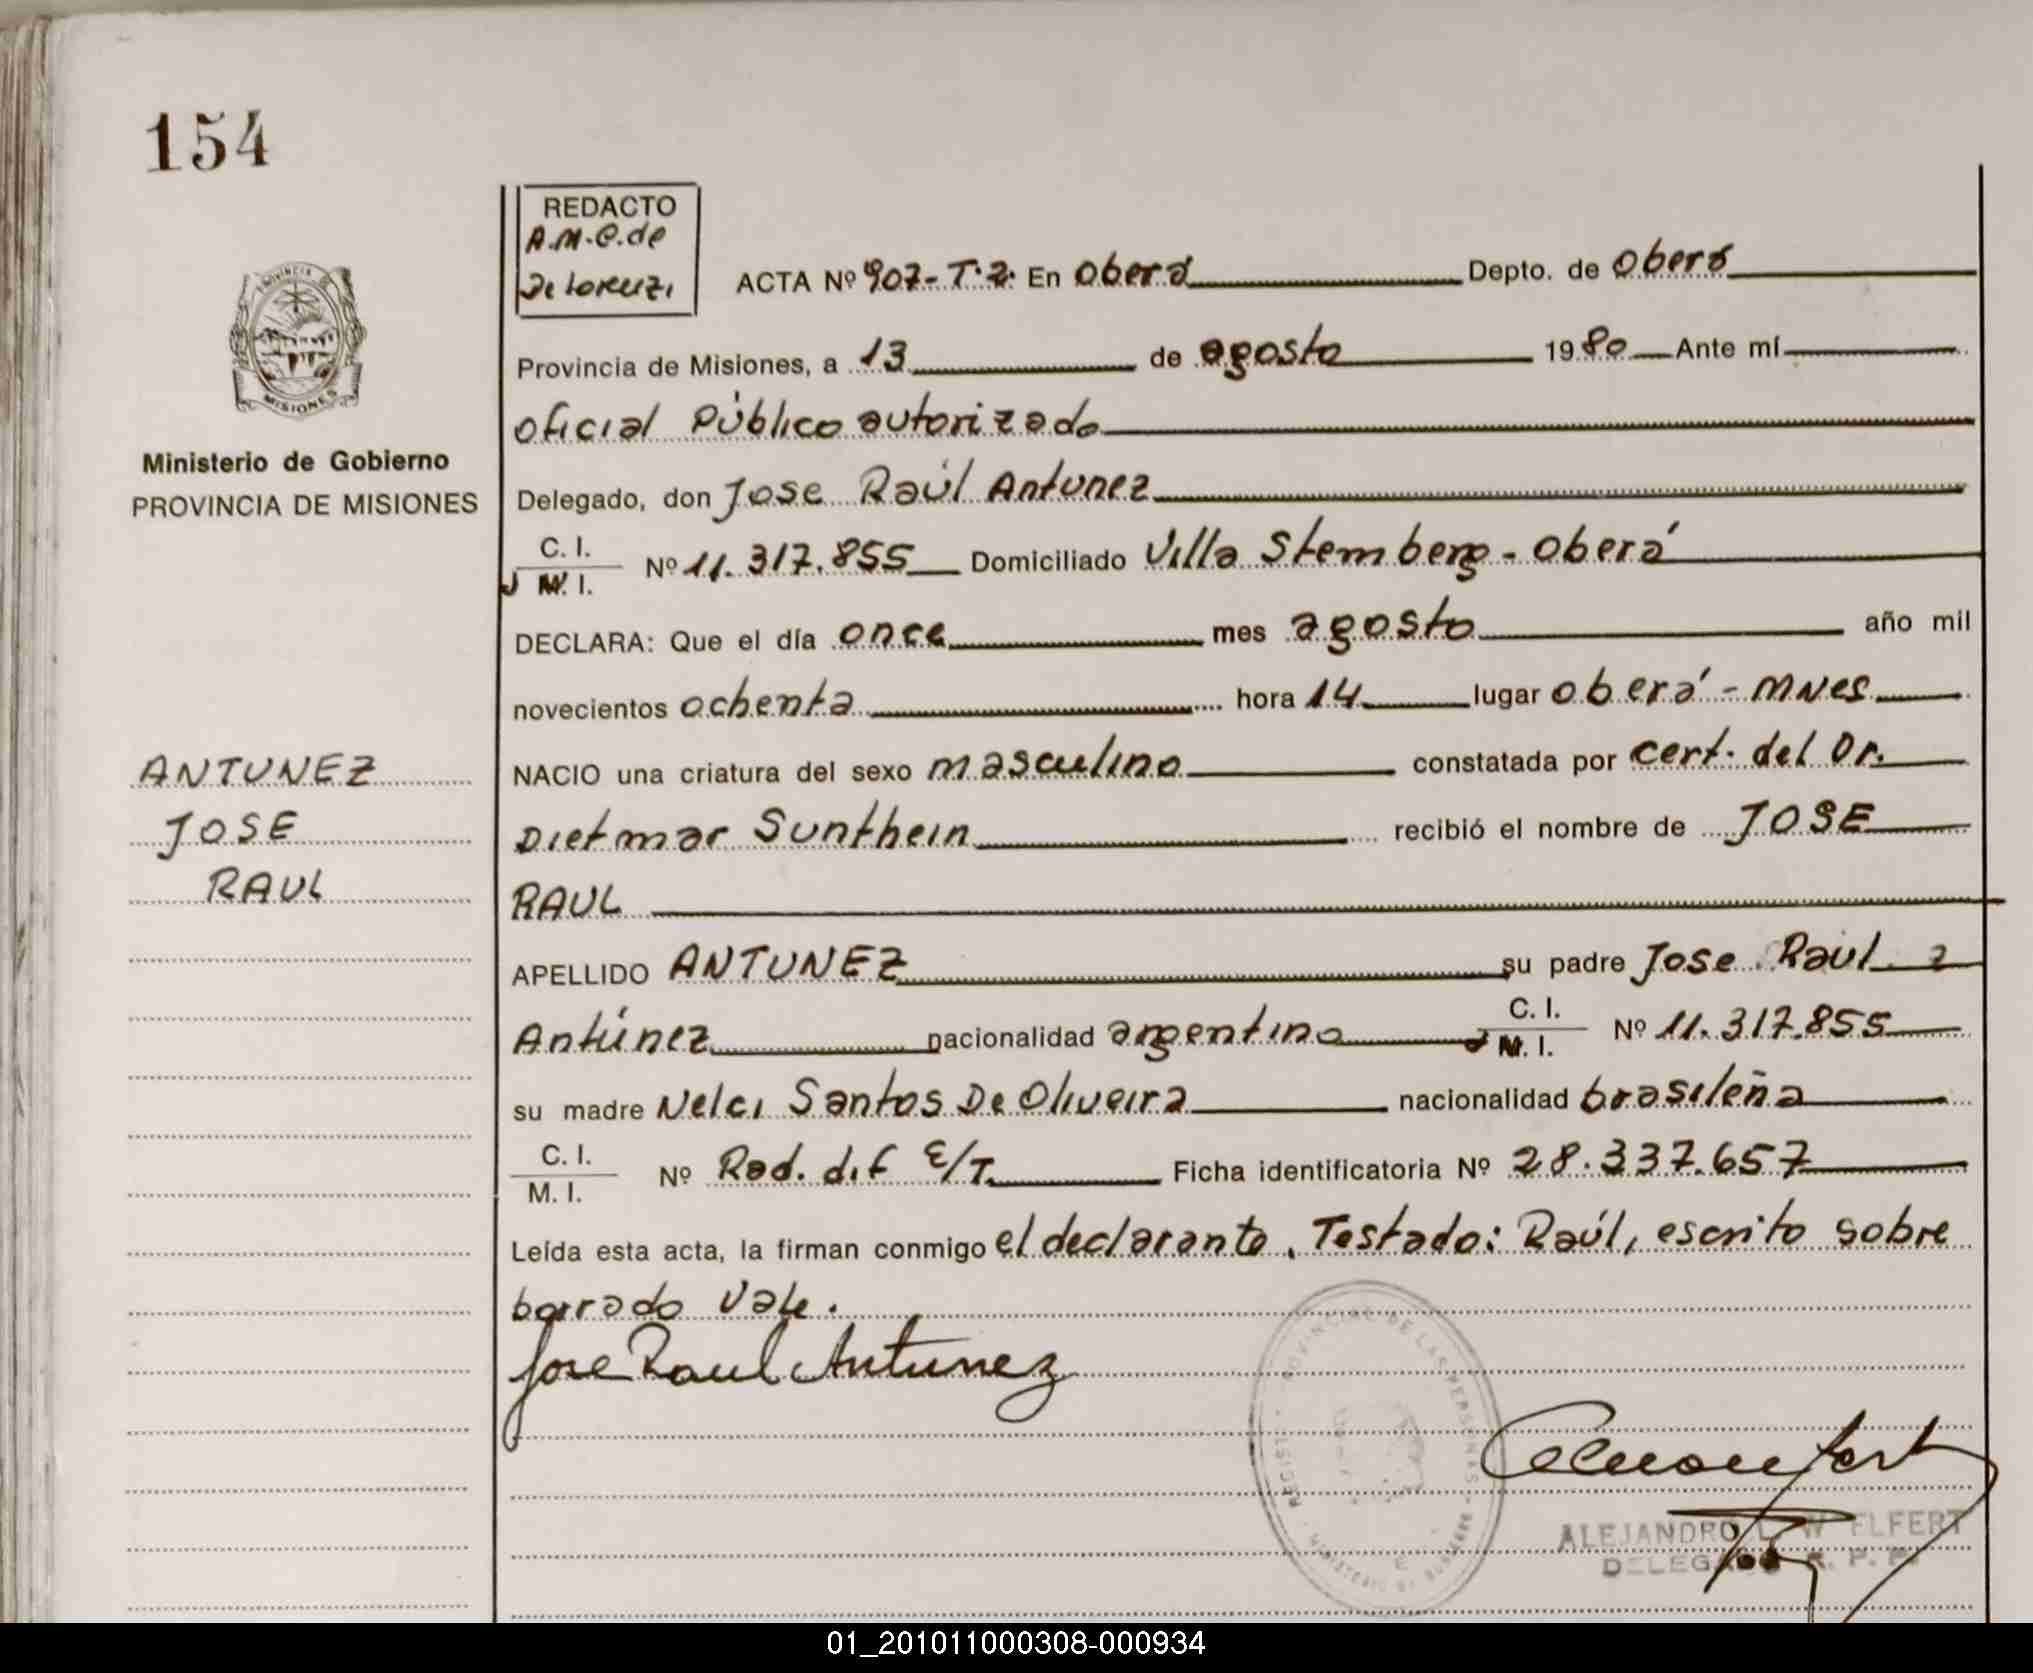 154
REDACTO
A.M.C. de
De Lorenzi
ACTA Nº 907-T.2. En Oberá Depto. de Oberá
Provincia de Misiones, a 13 de agosto 1980 Ante mí
oficial Público autorizado
Delegado, don Jose Raúl Antunez
C. I.
M. I.
Nº 11.317.855 Domiciliado Villa Stemberg - Oberá
DECLARA: Que el día once mes agosto año mil
novecientos ochenta hora 14 lugar Oberá - MNES
NACIO una criatura del sexo masculino constatada por cert. del Dr.
Dietmar Sunthein recibió el nombre de JOSE
RAUL
APELLIDO ANTUNEZ su padre Jose Raul
Antúnez nacionalidad argentina C. I.
M. I. Nº 11.317.855
su madre Nelci Santos De Oliveira nacionalidad brasileña
C. I.
M. I.
Nº Rad. dif E/T. Ficha identificatoria Nº 28.337.657
Leída esta acta, la firman conmigo el declarante. Testado: Raúl, escrito sobre
borrado Vale.
Jose Raul Antunez
PROVINCIA
MISIONES
Ministerio de Gobierno
PROVINCIA DE MISIONES
ANTUNEZ
JOSE
RAUL
PROVINCIAL DE LAS PERSONAS
ALEJANDRO
DELEGADO
01_201011000308-000934